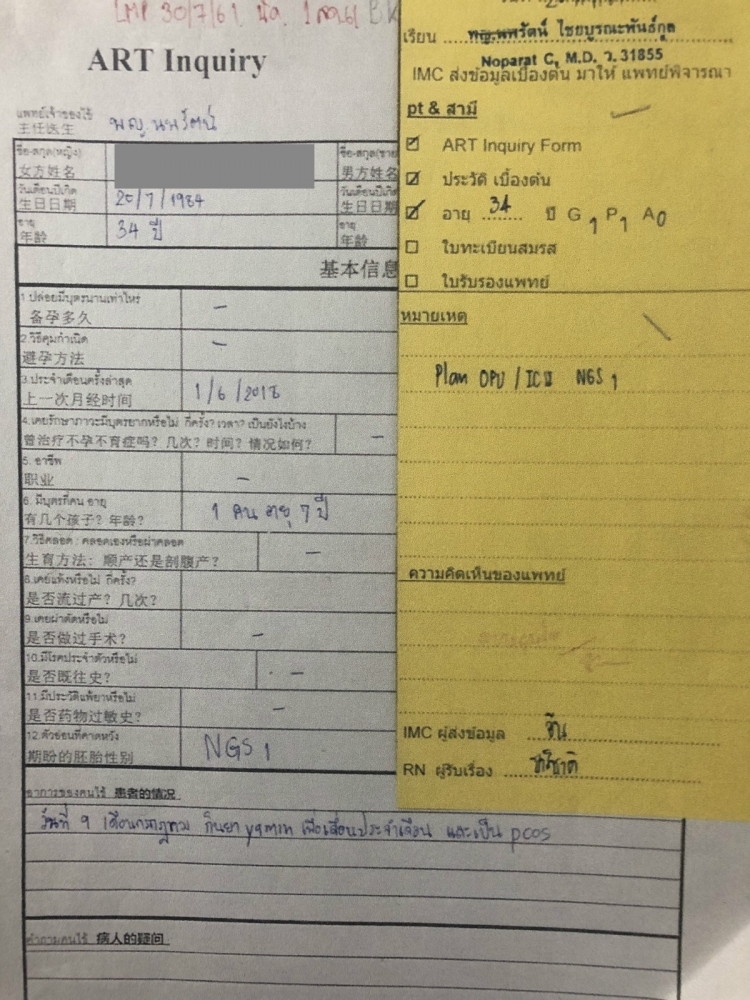 LMP 30/7/61 นัด 1 สค 61
ART Inquiry
แพทย์เจ้าของไข้ พญ.นพรัตน์
主任医生
ชื่อ-สกุล(หญิง)
女方姓名
ชื่อ-สกุล(ชาย
男方姓名
วันเดือนปีเกิด 25/7/1984
生日日期
วันเดือนปีเกิด
生日日期
อายุ 34 ปี
年龄
อายุ
年龄
基本信息
1.ปล่อยมีบุตรนานเท่าไหร่ –
备孕多久
2.วิธีคุมกำเนิด –
避孕方法
3.ประจำเดือนครั้งล่าสุด 1/6/2018
上一次月经时间
4.เคยรักษาภาวะมีบุตรยากหรือไม่ กี่ครั้ง? เวลา? เป็นยังไงบ้าง –
曾治疗不孕不育症吗？几次？时间？情况如何？
5. อาชีพ –
职业
6. มีบุตรกี่คน อายุ 1 คน อายุ 7 ปี
有几个孩子？年龄？
7.วิธีคลอด : คลอดเองหรือผ่าคลอด –
生育方法：顺产还是剖腹产？
8.เคยแท้งหรือไม่ กี่ครั้ง?
是否流过产？几次？
9.เคยผ่าตัดหรือไม่ –
是否做过手术？
10.มีโรคประจำตัวหรือไม่ –
是否既往史？
11.มีประวัติแพ้ยาหรือไม่ –
是否药物过敏史？
12.ตัวอ่อนที่คาดหวัง NGS 1
期盼的胚胎性别
อาการของคนไข้ 患者的情况
วันที่ 9 เดือนกรกฎาคม กินยา เพื่อเลื่อนประจำเดือน และเป็น pcos
คำถามคนไข้ 病人的疑问
เรียน พญ.นพรัตน์ ไชยบูรณะพันธ์กุล
Noparat C, M.D. ว.31855
IMC ส่งข้อมูลเบื้องต้น มาให้ แพทย์พิจารณา
pt & สามี
☑ ART Inquiry Form
☑ ประวัติ เบื้องต้น
☑ อายุ 34 ปี G 1 P 1 A 0
☐ ใบทะเบียนสมรส
☐ ใบรับรองแพทย์
หมายเหตุ
Plan OPU / ICSI NGS 1
ความคิดเห็นของแพทย์
IMC ผู้ส่งข้อมูล
RN ผู้รับเรื่อง